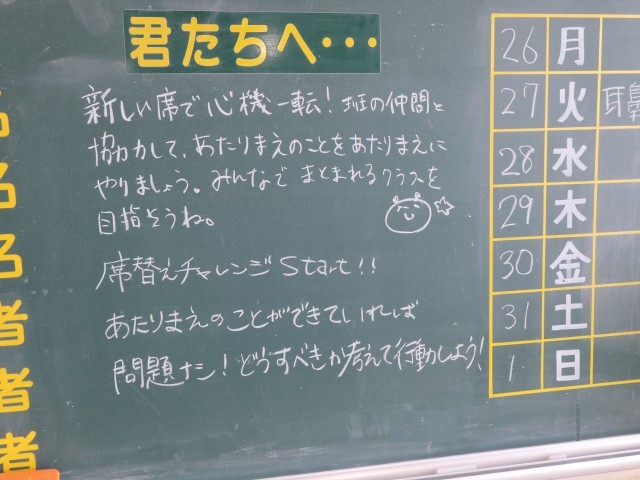 君たちへ・・・
新しい席で心機一転！班の仲間と
協力して、あたりまえのことをあたりまえに
やりましょう。みんなでまとまれるクラスを
目指そうね。
席替えチャレンジStart!!
あたりまえのことができていれば
問題ナシ！どうすべきか考えて行動しよう！
26 月
27 火 耳鼻
28 水
29 木
30 金
31 土
1 日
名
名
者
者
者